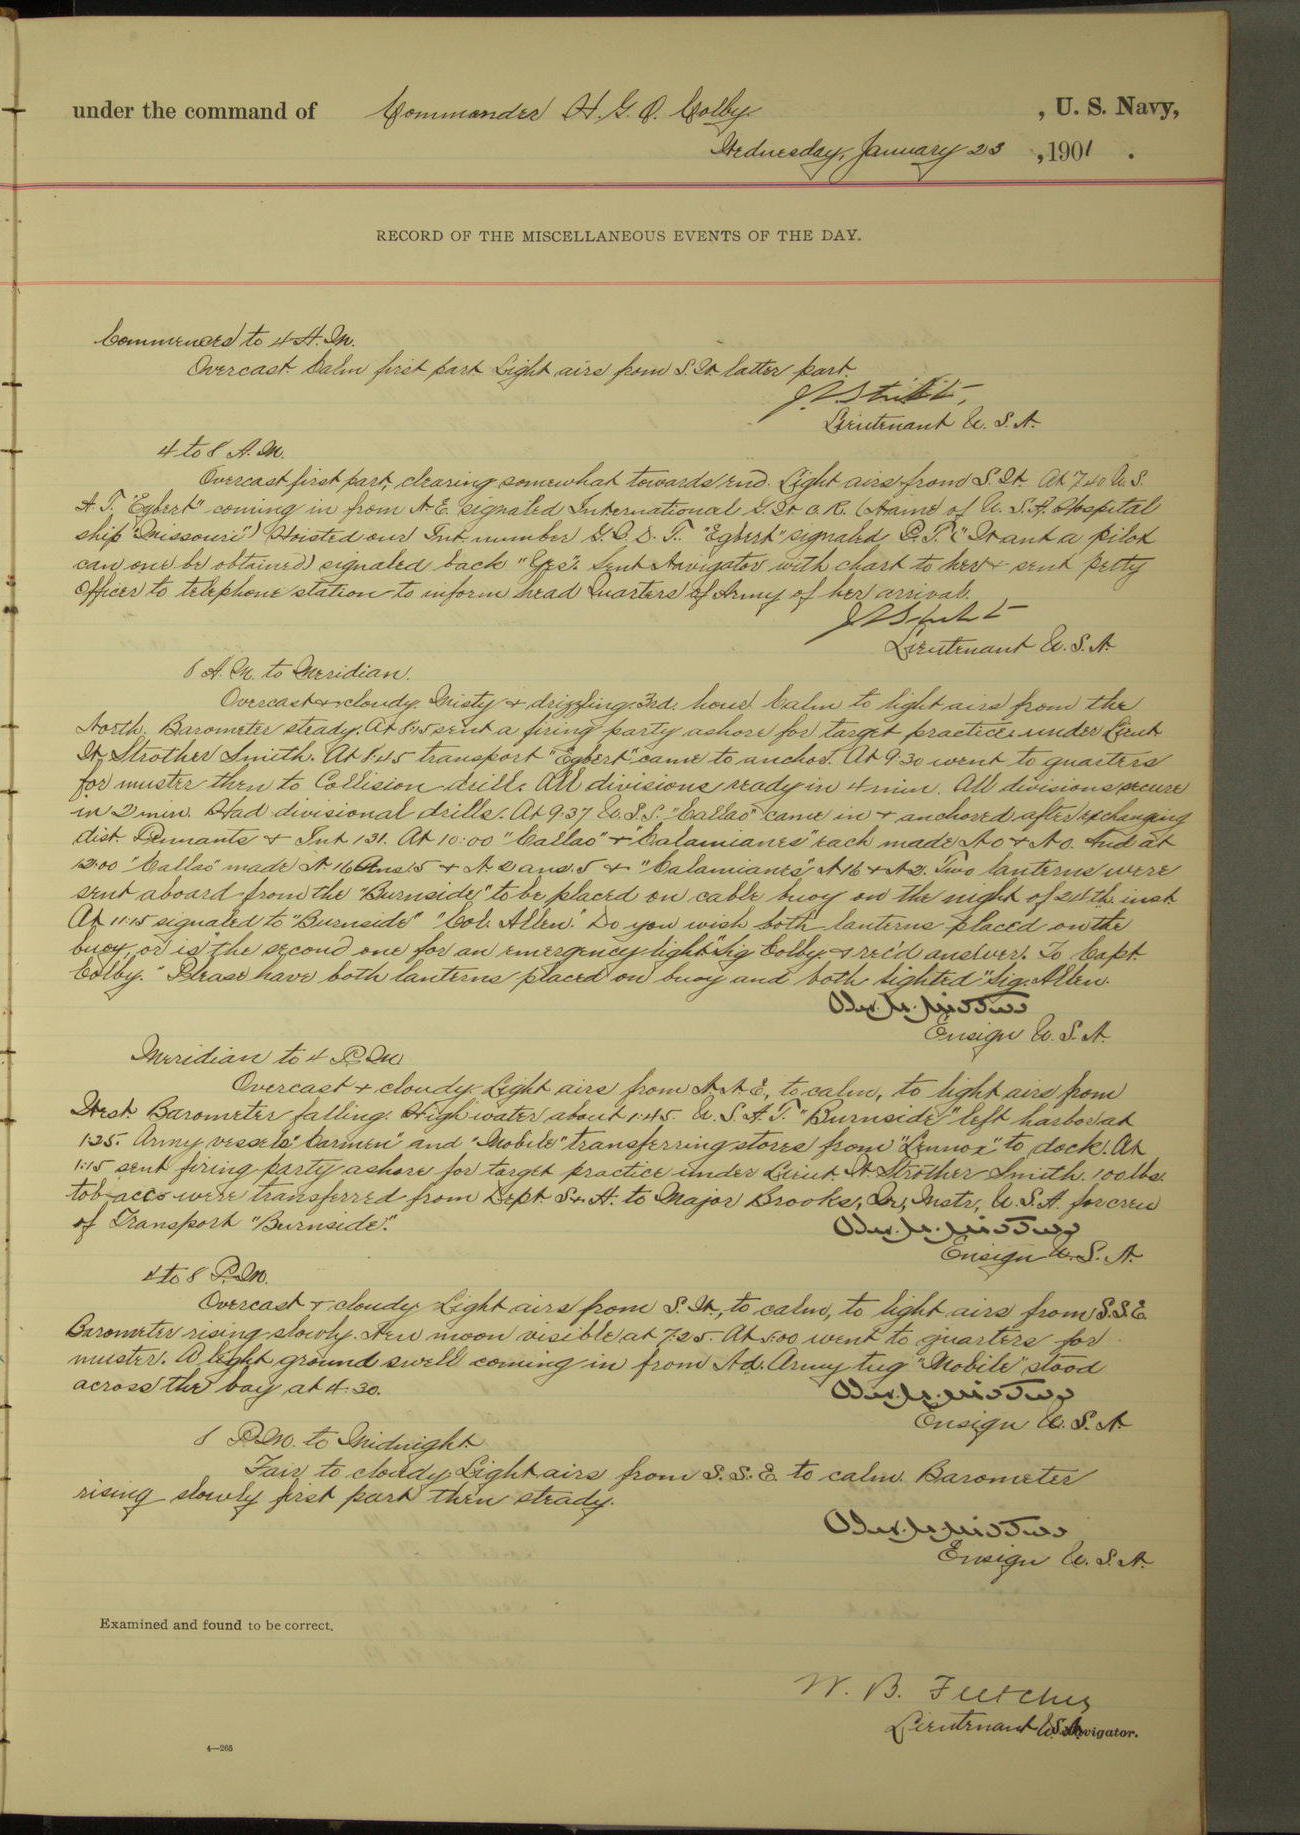 under the command of Commander H. G. O. Colby , U. S. Navy,
Wednesday, January 23 , 1901 .
RECORD OF THE MISCELLANEOUS EVENTS OF THE DAY.
Commences to 4 A.M.
Overcast. Calm first part Light airs from S.W. latter part.
Lieutenant U. S. N.
4 to 8 A.M.
Overcast first part, clearing somewhat towards end. Light airs from S.W. At 7.40 U.S.
A.T. "Egbert" coming in from N.E. signaled International G.W.O.R. (Name of U.S.A. Hospital
ship "Missouri") Hoisted our Int. number G.Q.D.T. "Egbert" signaled P.T. ("Want a pilot
can one be obtained) signaled back "Yes". Sent Navigator with chart to her & sent petty
officer to telephone station to inform head Quarters of Army of her arrival.
Lieutenant U.S.N.
8 A.M. to Meridian.
Overcast & cloudy. Misty & drizzling 3rd. hour. Calm to light airs from the
North. Barometer steady. At 8:15 sent a firing party ashore for target practice under Lieut
W. Strother Smith. At 8:45 transport "Egbert" came to anchor. At 9:30 went to quarters
for muster then to Collision drill. All divisions ready in 4 min. All divisions secure
in 2 min. Had divisional drills. At 9:37 U.S.S. "Callao" came in & anchored after exchanging
dist. Pennants & Int 131. At 10:00 "Callao" & "Calamianes" each made A0 & N0. And at
12:00 "Callao" made A 16 ans. 5 & A 2 ans. 5 & "Calamianes" A16 & A2. Two lanterns were
sent aboard from the "Burnside" to be placed on cable buoy on the night of 24th. inst
At 11:15 signaled to "Burnside" "Col. Allen." Do you wish both lanterns placed on the
buoy, or is the second one for an emergency light" Sig Colby. & rec'd answer. To Capt.
Colby. "Please have both lanterns placed on buoy and both lighted" Sig. Allen.
Ensign U. S. N.
Meridian to 4 P.M
Overcast & cloudy. Light airs from N.N.E., to calm, to light airs from
West. Barometer falling. High water about 1:45. U.S.A.T. "Burnside" left harbor at
1:25. Army vessels "Carmen" and "Mobile" transferring stores from "Lennox" to dock. At
1:15 sent firing party ashore for target practice under Lieut. W. Strother Smith. 100 lbs.
tobacco were transferred from Dept S & A. to Major Brooks, Qr, Mstr, U.S.A. for crew
of Transport "Burnside".
Ensign U. S. N.
4 to 8 P.M.
Overcast & cloudy. Light airs from S.W., to calm, to light airs from S.S.E.
Barometer rising slowly. New moon visible at 7.25. At 5:00 went to quarters for
muster. A light ground swell coming in from Nd. Army tug "Mobile" stood
across the bay at 4.30.
Ensign U. S. N.
8 P.M. to Midnight
Fair to cloudy. Light airs from S.S.E. to calm. Barometer
rising slowly first part then steady.
Ensign U. S. N.
Examined and found to be correct.
W. B. Fletcher
Lieutenant U.S.N. Navigator.
4—265